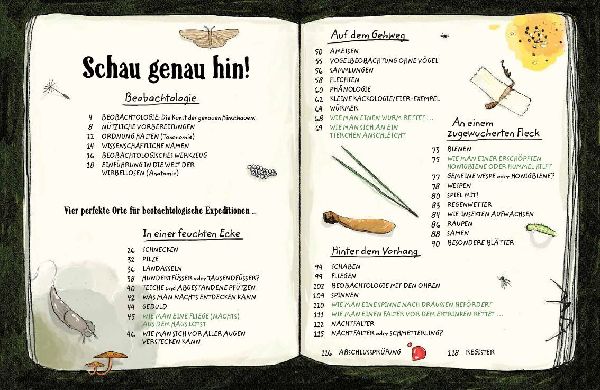 Schau genau hin!
Beobachtologie
4 BEOBACHTOLOGIE: Die Kunst der genauen Hinschauens
8 NÜTZLICHE VORBEREITUNGEN
12 ORDNUNG HALTEN (Taxonomie)
14 WISSENSCHAFTLICHE NAMEN
16 BEOBACHTOLOGISCHES WERKZEUG
18 EINFÜHRUNG IN DIE WELT DER
WIRBELLOSEN (Anatomie)
Vier perfekte Orte für beobachtologische Expeditionen ...
In einer feuchten Ecke
26 SCHNECKEN
32 PILZE
36 LANDASSELN
38 HUNDERTFÜSSER oder TAUSENDFÜSSER?
40 TEICHE und ABGESTANDENE PFÜTZEN
42 WAS MAN NACHTS ENTDECKEN KANN
44 GEDULD
45 WIE MAN EINE FLIEGE (NACHTS)
AUS DEM HAUS LOTST
46 WIE MAN SICH VOR ALLER AUGEN
VERSTECKEN KANN
Auf dem Gehweg
50 AMEISEN
55 VOGELBEOBACHTUNG OHNE VÖGEL
56 SAMMLUNGEN
58 FLECHTEN
60 PHÄNOLOGIE
62 KLEINE KACKOLOGIE/TIER-EXEMPEL
64 WÜRMER
68 WIE MAN EINEN WURM RETTET ...
69 WIE MAN SICH AN EIN
TIERCHEN ANSCHLEICHT
An einem
zugewucherten Fleck
73 BIENEN
75 WIE MAN EINER ERSCHÖPFTEN
HONIGBIENE ODER HUMMEL HILFT
77 GEMEINE WESPE oder HONIGBIENE?
78 WESPEN
80 SPIEL MIT!
83 REGENWETTER
84 WIE INSEKTEN AUFWACHSEN
86 RAUPEN
88 SAMEN
90 BESONDERE BLÄTTER
Hinter dem Vorhang
94 SCHABEN
99 FLIEGEN
102 BEOBACHTOLOGIE MIT DEN OHREN
104 SPINNEN
110 WIE MAN EINE SPINNE NACH DRAUSSEN BEFÖRDERT
111 WIE MAN EINEN FALTER VOR DEM ERTRINKEN RETTET ...
112 NACHTFALTER
115 NACHTFALTER oder SCHMETTERLING?
116 ABSCHLUSSPRÜFUNG
118 REGISTER